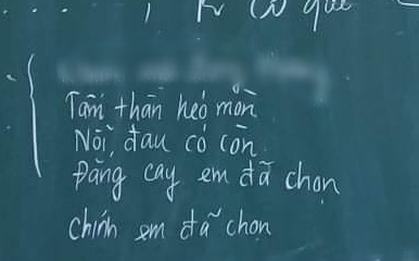 K có quê
Tâm thân héo mòn
Nỗi đau có còn
Đắng cay em đã chọn
chính em đã chọn